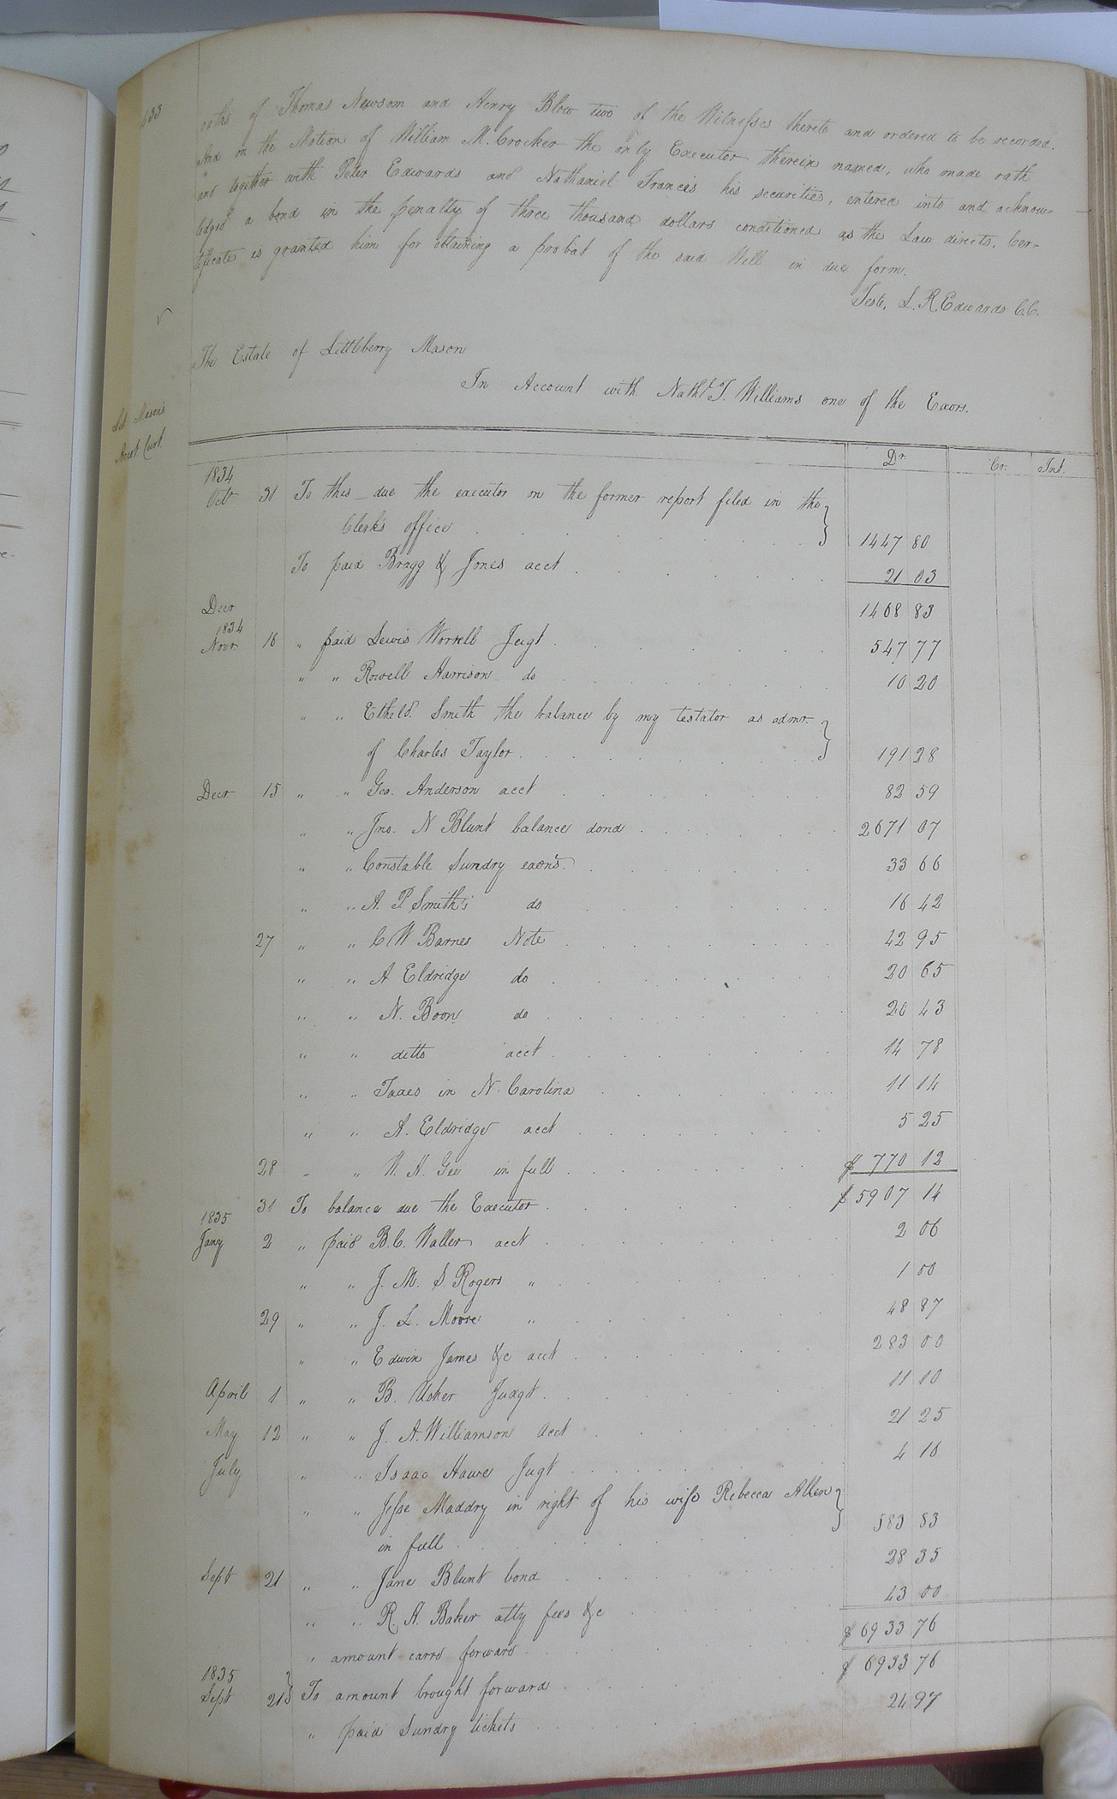 433
oaths of Thomas Newsom and Henry Blow two of the Witnesses thereto and ordered to be recorded.
And on the Motion of William M. Crocker the only Executor therein named, who made oath
and together with Peter Edwards and Nathaniel Francis his securities, entered into and acknow-
ledged a bond in the penalty of three thousand dollars conditioned as the Law directs, Cer-
tificate is granted him for obtaining a probat of the said Will in due form.
Teste, L. R. Edwards C.C.
The Estate of Littleberry Mason
In Account with Nathl. T. Williams one of the Exors.
Lit Mason's
Acct Curt
Dr. Cr. Int.
1834
Octr 31 To this due the executor on the former report filed in the
Clerks office 1447 80
To paid Bragg & Jones acct 21 03
Decr 1468 83
1834
Novr 16 " paid Lewis Worrell Jugt 547 77
" " Rowell Harrison do 10 20
" " Etheld. Smith the balance by my testator as admr.
of Charles Taylor 191 28
Decr 15 " " Geo. Anderson acct 82 59
" " Jno. N Blunt balance bond 2671 07
" " Constable Sundry exons. 33 66
" " A. P. Smith's do 16 42
27 " " C W Barnes Note 42 95
" " A Eldridge do 20 65
" " N. Boon do 20 43
" " ditto acct 14 78
" " Taxes in N. Carolina 11 14
" " A. Eldridge acct 5 25
28 " " W. H. Gee in full $ 770 12
31 To balance due the Executor $ 5907 14
1835
Jany 2 " paid B. C. Waller acct 2 06
" " J. M. S. Rogers " 1 00
29 " " J. L. Moore " 48 87
" " Edwin James &c acct 283 00
April 1 " " B. Usher Judgt 11 10
May 12 " " J. A. Williamson acct 21 25
July " " Isaac Haure Jugt 4 16
" " Jesse Maddry in right of his wife Rebecca Allen
in full 583 83
Sept 21 " " Jane Blunt bond 28 35
" " R. A. Baker atty fees &c 43 00
" amount carrd forward $ 6933 76
1835
Sept 21 To amount brought forward $ 6933 76
" paid Sundry tickets 24 97